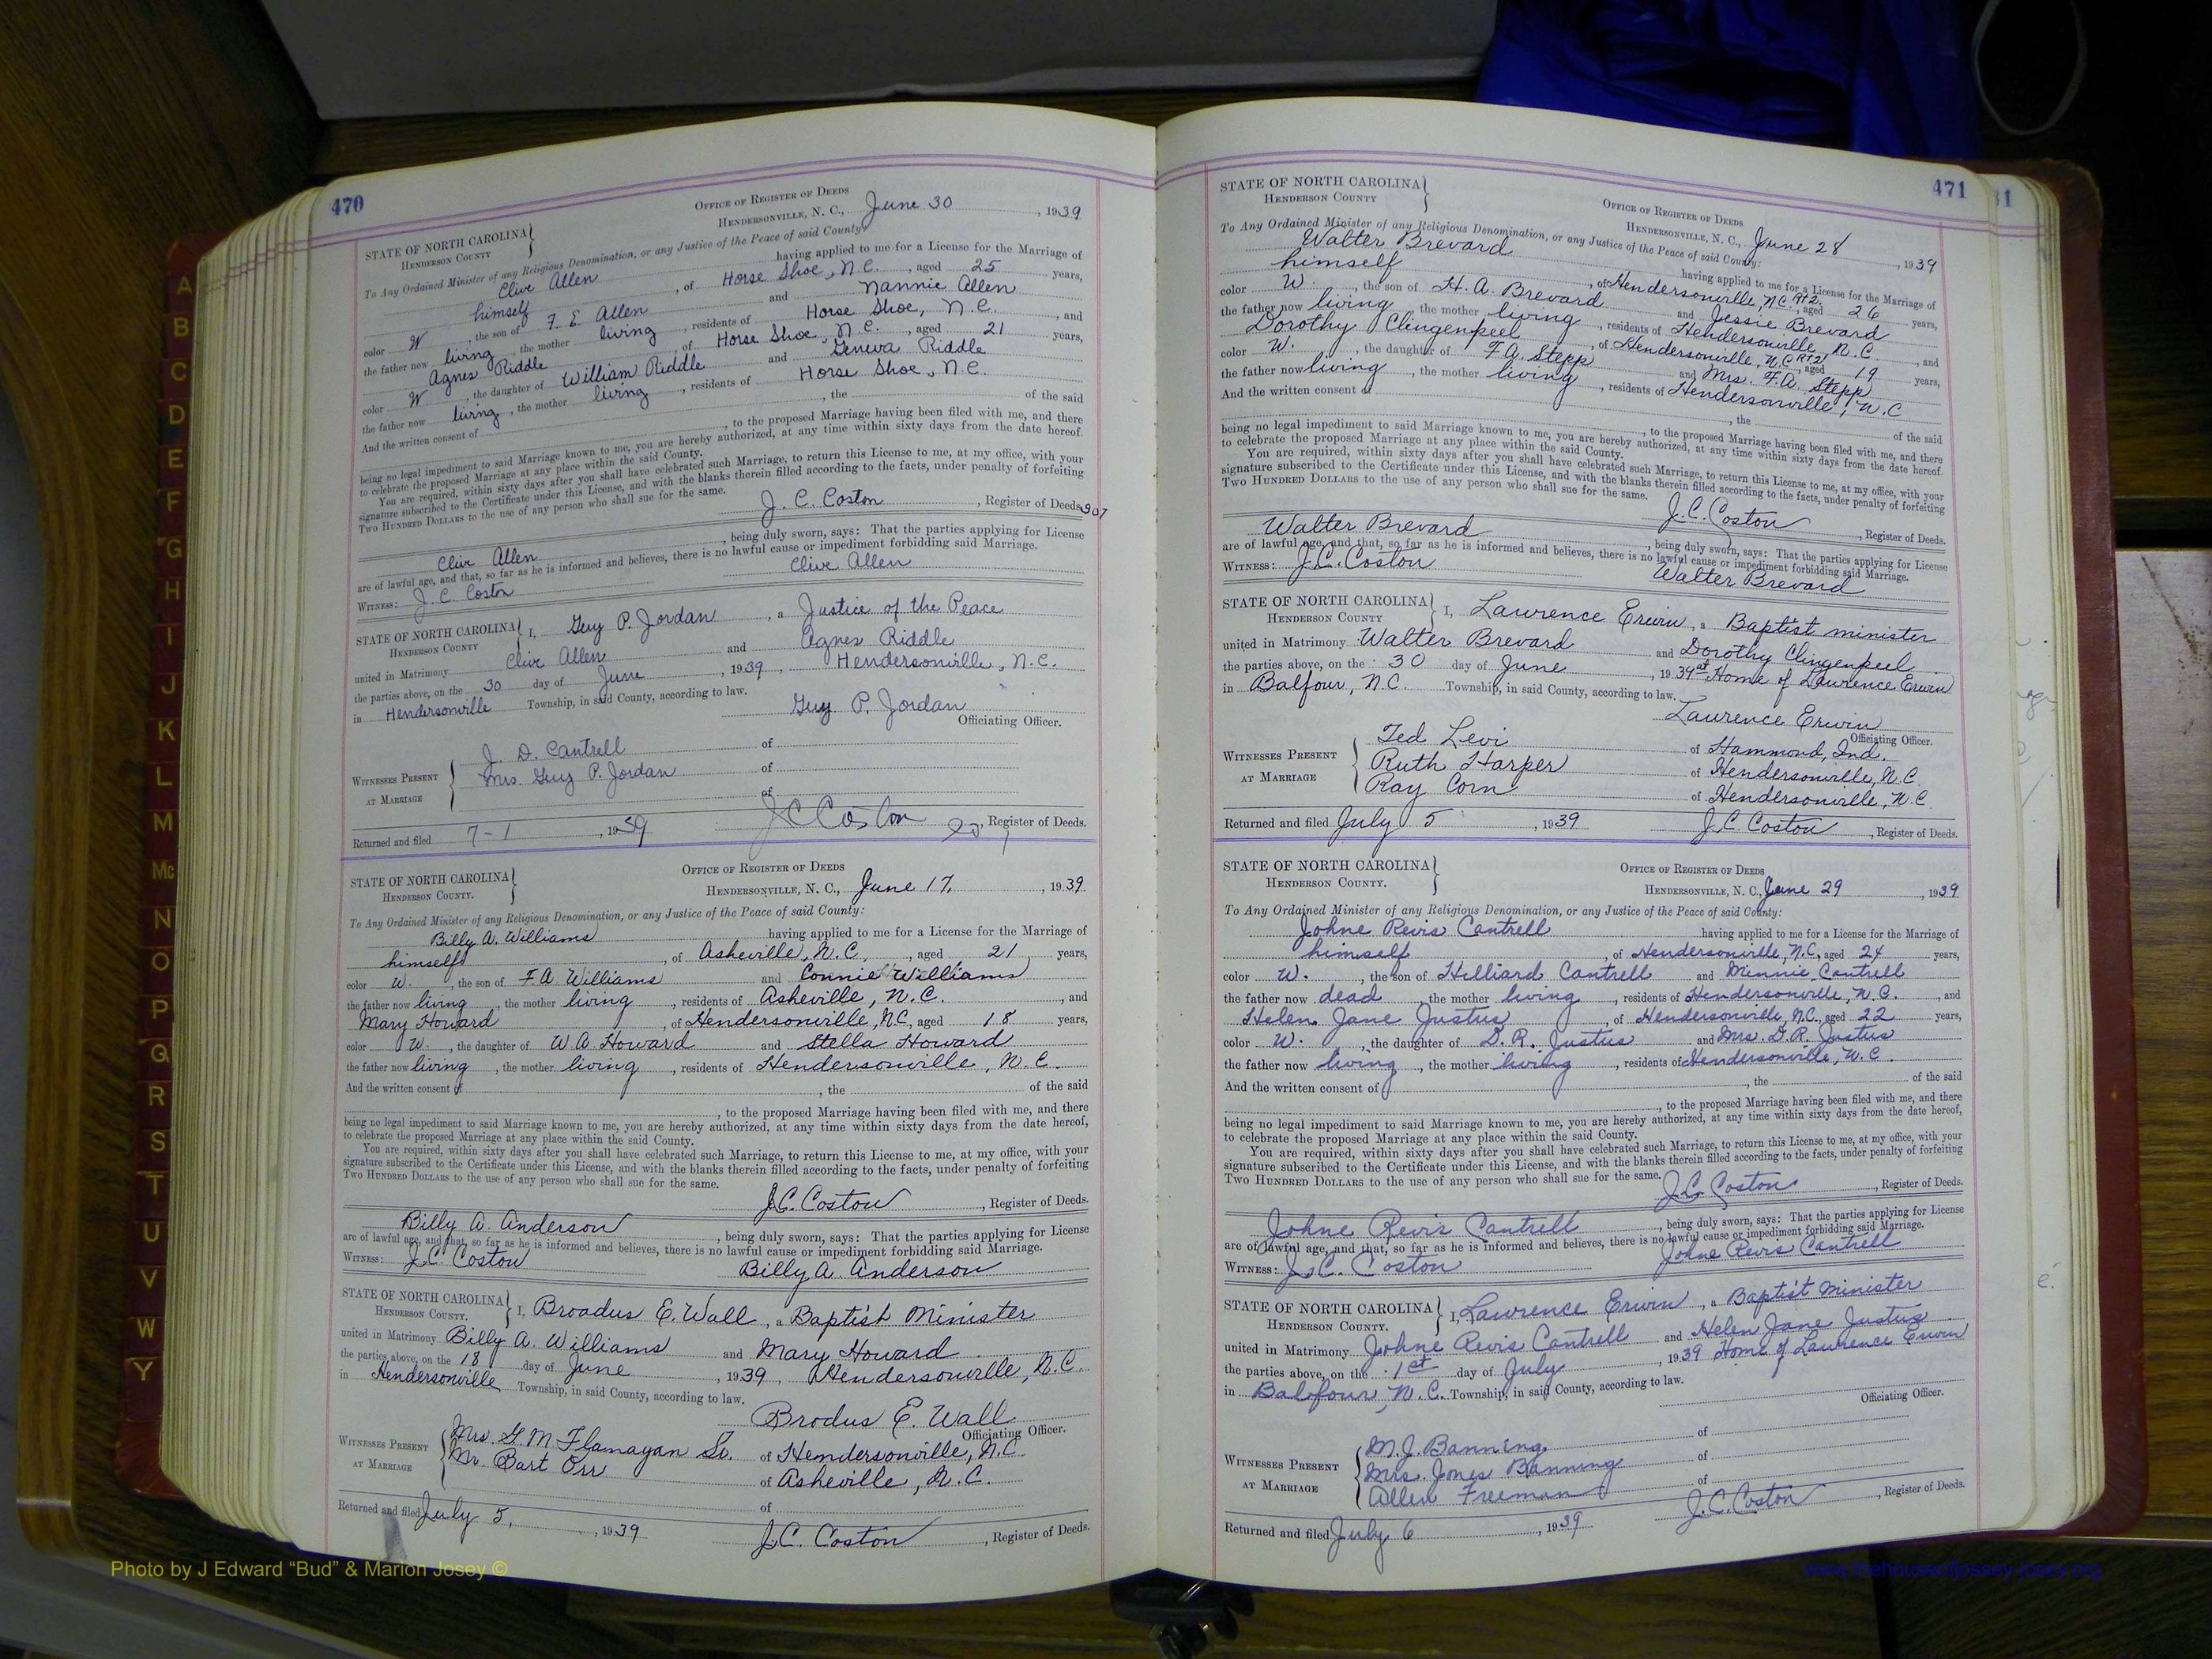 470
STATE OF NORTH CAROLINA
HENDERSON COUNTY
OFFICE OF REGISTER OF DEEDS
HENDERSONVILLE, N. C., June 30, 1939
To Any Ordained Minister of any Religious Denomination, or any Justice of the Peace of said County:
Clive Allen having applied to me for a License for the Marriage of
himself, of Horse Shoe, N.C., aged 25 years,
color W, the son of F. E. Allen and Nannie Allen
the father now living, the mother living, residents of Horse Shoe, N.C., and
Agnes Riddle, of Horse Shoe, N.C., aged 21 years,
color W, the daughter of William Riddle and Geneva Riddle
the father now living, the mother living, residents of Horse Shoe, N.C.
And the written consent of, the of the said
, to the proposed Marriage having been filed with me, and there
being no legal impediment to said Marriage known to me, you are hereby authorized, at any time within sixty days from the date hereof,
to celebrate the proposed Marriage at any place within the said County.
You are required, within sixty days after you shall have celebrated such Marriage, to return this License to me, at my office, with your
signature subscribed to the Certificate under this License, and with the blanks therein filled according to the facts, under penalty of forfeiting
TWO HUNDRED DOLLARS to the use of any person who shall sue for the same.
J. C. Coston, Register of Deeds
Clive Allen, being duly sworn, says: That the parties applying for License
are of lawful age, and that, so far as he is informed and believes, there is no lawful cause or impediment forbidding said Marriage.
WITNESS: J. C. Coston Clive Allen
STATE OF NORTH CAROLINA
HENDERSON COUNTY
I, Guy P. Jordan, a Justice of the Peace
united in Matrimony Clive Allen and Agnes Riddle
the parties above, on the 30 day of June, 1939, Hendersonville, N.C.
in Hendersonville Township, in said County, according to law.
Guy P. Jordan
Officiating Officer.
WITNESSES PRESENT AT MARRIAGE
J. D. Cantrell of
Mrs. Guy P. Jordan of
of
Returned and filed 7-1, 1939 J C Coston, Register of Deeds.
STATE OF NORTH CAROLINA
HENDERSON COUNTY.
OFFICE OF REGISTER OF DEEDS
HENDERSONVILLE, N. C., June 17, 1939
To Any Ordained Minister of any Religious Denomination, or any Justice of the Peace of said County:
Billy A. Williams having applied to me for a License for the Marriage of
himself, of Asheville, N.C., aged 21 years,
color W., the son of F.A. Williams and Connie Williams
the father now living, the mother living, residents of Asheville, N.C., and
Mary Howard, of Hendersonville, N.C., aged 18 years,
color W., the daughter of W.A. Howard and Stella Howard
the father now living, the mother living, residents of Hendersonville, N.C.
And the written consent of, the of the said
, to the proposed Marriage having been filed with me, and there
being no legal impediment to said Marriage known to me, you are hereby authorized, at any time within sixty days from the date hereof,
to celebrate the proposed Marriage at any place within the said County.
You are required, within sixty days after you shall have celebrated such Marriage, to return this License to me, at my office, with your
signature subscribed to the Certificate under this License, and with the blanks therein filled according to the facts, under penalty of forfeiting
TWO HUNDRED DOLLARS to the use of any person who shall sue for the same.
J.C. Coston, Register of Deeds.
Billy A. Anderson, being duly sworn, says: That the parties applying for License
are of lawful age, and that, so far as he is informed and believes, there is no lawful cause or impediment forbidding said Marriage.
WITNESS: J.C. Coston Billy A. Anderson
STATE OF NORTH CAROLINA
HENDERSON COUNTY.
I, Broadus E. Wall, a Baptist Minister
united in Matrimony Billy A. Williams and Mary Howard
the parties above, on the 18 day of June, 1939, Hendersonville, N.C.
in Hendersonville Township, in said County, according to law.
Brodus E. Wall
Officiating Officer.
WITNESSES PRESENT AT MARRIAGE
Mrs. G. M. Flanagan Sr. of Hendersonville, N.C.
Mr. Bart Orr of Asheville, N.C.
of
Returned and filed July 5, 1939 J.C. Coston, Register of Deeds.
471
STATE OF NORTH CAROLINA
HENDERSON COUNTY
OFFICE OF REGISTER OF DEEDS
HENDERSONVILLE, N. C., June 28, 1939
To Any Ordained Minister of any Religious Denomination, or any Justice of the Peace of said County:
Walter Brevard having applied to me for a License for the Marriage of
himself, of Hendersonville, N.C. Rt 2, aged 26 years,
color W., the son of H. A. Brevard and Jessie Brevard
the father now living, the mother living, residents of Hendersonville, N.C., and
Dorothy Clingenpeel, of Hendersonville, N.C. Rt 2, aged 19 years,
color W., the daughter of F.A. Stepp and Mrs. F.A. Stepp
the father now living, the mother living, residents of Hendersonville, N.C
And the written consent of, the of the said
, to the proposed Marriage having been filed with me, and there
being no legal impediment to said Marriage known to me, you are hereby authorized, at any time within sixty days from the date hereof.
to celebrate the proposed Marriage at any place within the said County.
You are required, within sixty days after you shall have celebrated such Marriage, to return this License to me, at my office, with your
signature subscribed to the Certificate under this License, and with the blanks therein filled according to the facts, under penalty of forfeiting
TWO HUNDRED DOLLARS to the use of any person who shall sue for the same.
J.C. Coston, Register of Deeds.
Walter Brevard, being duly sworn, says: That the parties applying for License
are of lawful age, and that, so far as he is informed and believes, there is no lawful cause or impediment forbidding said Marriage.
WITNESS: J.C. Coston Walter Brevard
STATE OF NORTH CAROLINA
HENDERSON COUNTY
I, Lawrence Erwin, a Baptist minister
united in Matrimony Walter Brevard and Dorothy Clingenpeel
the parties above, on the 30 day of June, 1939 at Home of Lawrence Erwin
in Balfour, N.C. Township, in said County, according to law.
Lawrence Erwin
Officiating Officer.
WITNESSES PRESENT AT MARRIAGE
Ted Levi of Hammond, Ind.
Ruth Harper of Hendersonville, N.C.
Ray Corn of Hendersonville, N.C.
Returned and filed July 5, 1939 J.C. Coston, Register of Deeds.
STATE OF NORTH CAROLINA
HENDERSON COUNTY.
OFFICE OF REGISTER OF DEEDS
HENDERSONVILLE, N. C., June 29, 1939
To Any Ordained Minister of any Religious Denomination, or any Justice of the Peace of said County:
Johne Revis Cantrell having applied to me for a License for the Marriage of
himself, of Hendersonville, N.C., aged 24 years,
color W., the son of Hilliard Cantrell and Minnie Cantrell
the father now dead, the mother living, residents of Hendersonville, N.C., and
Helen Jane Justus, of Hendersonville, N.C., aged 22 years,
color W., the daughter of D. R. Justus and Mrs. D.R. Justus
the father now living, the mother living, residents of Hendersonville, N.C.
And the written consent of, the of the said
, to the proposed Marriage having been filed with me, and there
being no legal impediment to said Marriage known to me, you are hereby authorized, at any time within sixty days from the date hereof,
to celebrate the proposed Marriage at any place within the said County.
You are required, within sixty days after you shall have celebrated such Marriage, to return this License to me, at my office, with your
signature subscribed to the Certificate under this License, and with the blanks therein filled according to the facts, under penalty of forfeiting
TWO HUNDRED DOLLARS to the use of any person who shall sue for the same.
J.C. Coston, Register of Deeds.
Johne Revis Cantrell, being duly sworn, says: That the parties applying for License
are of lawful age, and that, so far as he is informed and believes, there is no lawful cause or impediment forbidding said Marriage.
WITNESS: J.C. Coston Johne Revis Cantrell
STATE OF NORTH CAROLINA
HENDERSON COUNTY.
I, Lawrence Erwin, a Baptist Minister
united in Matrimony Johne Revis Cantrell and Helen Jane Justus
the parties above, on the 1st day of July, 1939 Home of Lawrence Erwin
in Balfour, N.C. Township, in said County, according to law.
Officiating Officer.
WITNESSES PRESENT AT MARRIAGE
M.J. Banning of
Mrs. Jones Banning of
Allen Freeman of
Returned and filed July 6, 1939 J.C. Coston, Register of Deeds.
A
B
C
D
E
F
G
H
I
J
K
L
M
Mc
N
O
P
Q
R
S
T
U
V
W
Y
Photo by J Edward “Bud” & Marion Josey ©
www.thehouseofjossey-josey.org